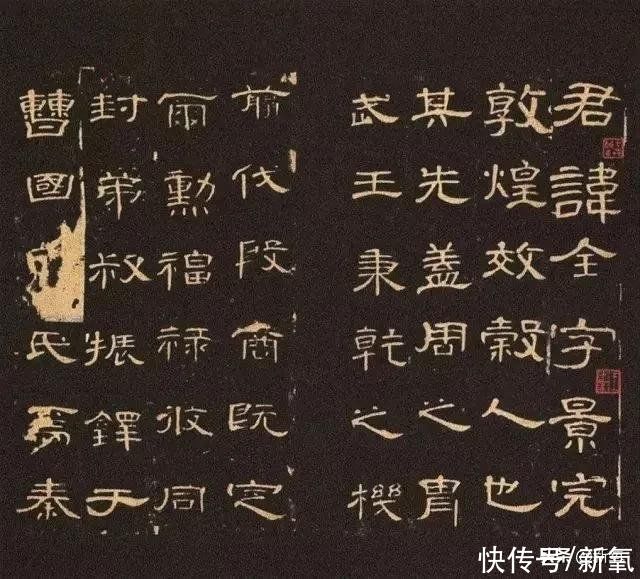 君諱全字景完
敦煌效穀人也
其先蓋周之胄
武王秉乾之機
翦伐殷商既定
爾勳福禄攸同
封弟叔振鐸于
曹國氏焉秦
快传号/新氧